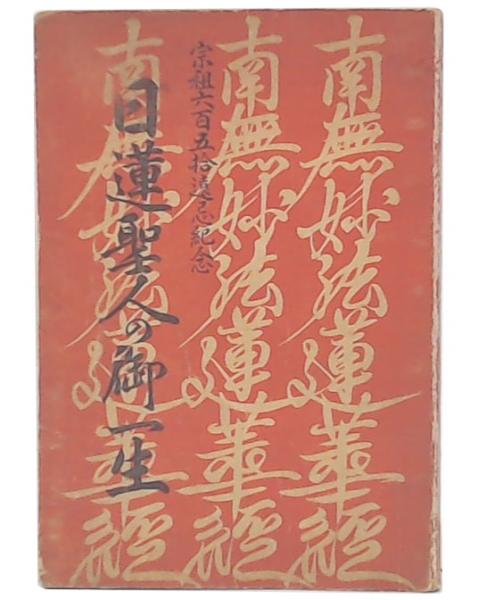 南無妙法蓮華經
南無妙法蓮華經
宗祖六百五拾遠忌紀念
日蓮聖人の御一生
南無妙法蓮華經